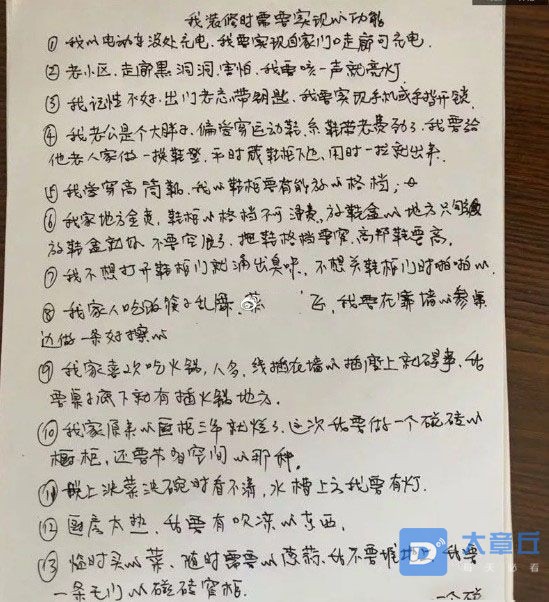 我装修时需要实现以功能
① 我以电动车没处充电.我要实现自家门口走廊可充电.
② 老小区.走廊黑洞洞.害怕.我要咳一声就亮灯.
③ 我记性不好.出门老忘带钥匙.我要实现手机或手指开锁.
④ 我老公是个大胖子.偏爱穿运动鞋.系鞋带老费劲了.我要给
他老人家做一换鞋凳.平时藏鞋柜下.用时一拉就出来.
⑤ 我爱穿高筒靴.我以鞋柜要有能放以格档;
⑥ 我家地方金贵.鞋柜以格档不可浪费.放鞋盒以地方只够
放鞋盒就好 不要空很了.拖鞋格档要窄.高帮鞋要高.
⑦ 我不想打开鞋柜门就涌出臭味.不想关鞋柜门时啪啪以.
⑧ 我家人吃饭筷子乱舞.菜 飞.我要在靠墙以餐桌
边做一条好擦以
⑨ 我家喜欢吃火锅,人多.线插在墙以插座上就碍事.我
要桌子底下就有插火锅地方.
⑩ 我家原来以厨柜三年就烂了.这次我要做一个磁砖以
橱柜.还要节省空间以那种.
⑪ 晚上洗菜洗碗时看不清,水槽上方我要有灯.
⑫ 厨房太热.我要有吹凉以东西.
⑬ 临时买以菜.随时需要以葱蒜.我不要堆地上 我要
一条无门以磁砖窄柜.
一个磁
大章丘
看